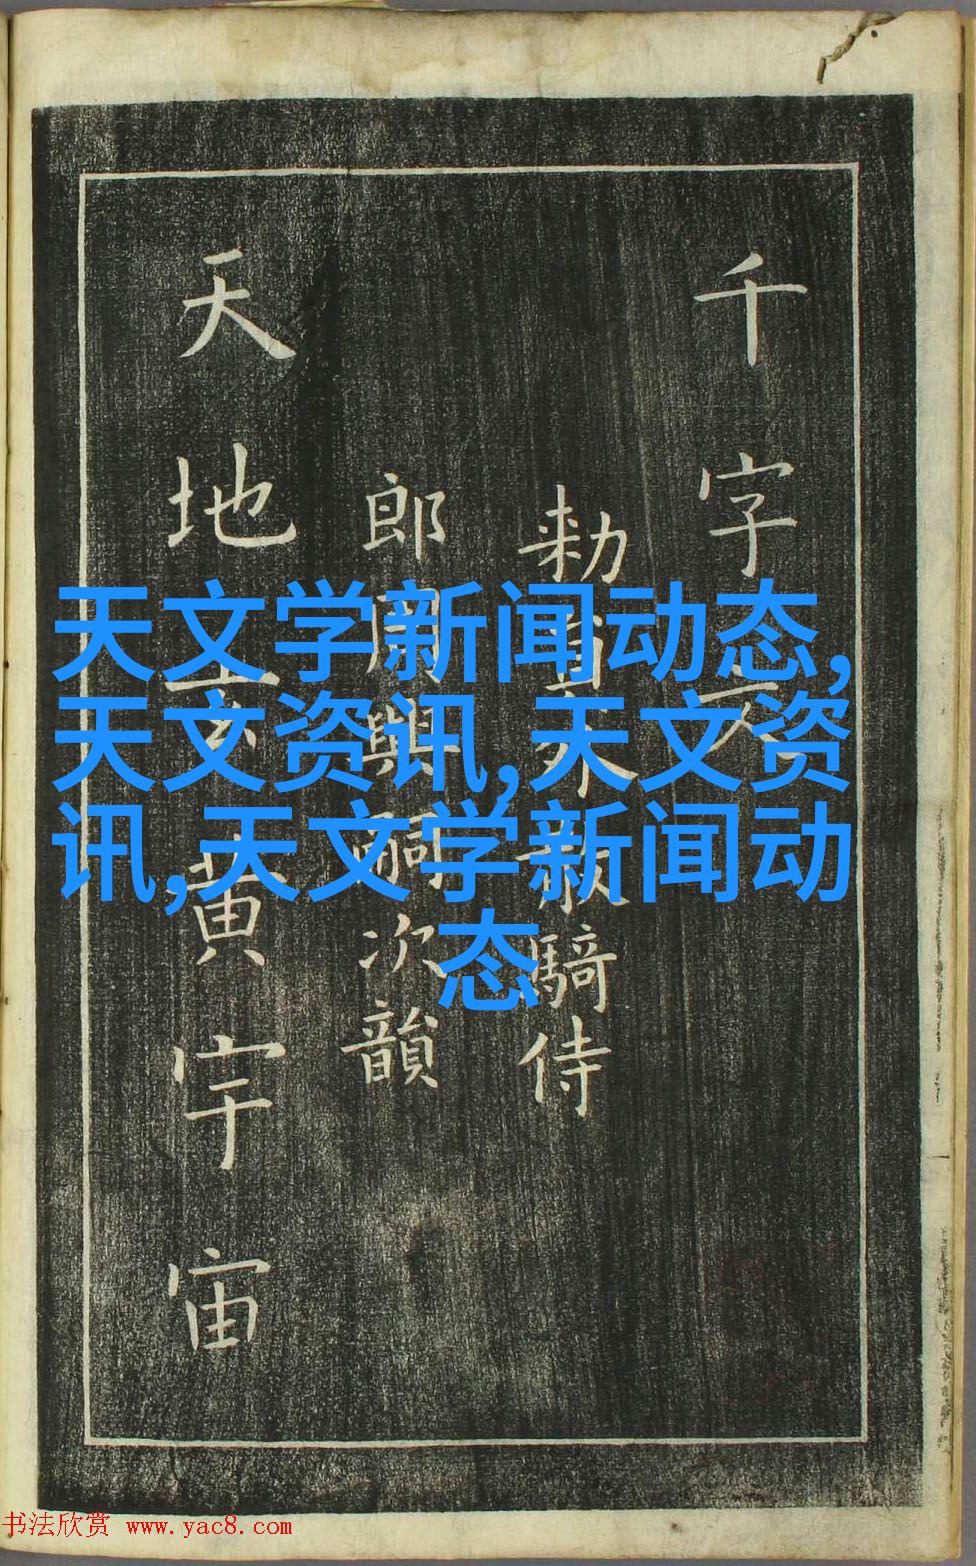 千字文
勅員外散騎侍
郎周興嗣次韻
天地玄黄宇宙
天文学新闻动态,
天文资讯,天文资
讯,天文学新闻动
态
书法欣赏 www.yac8.com